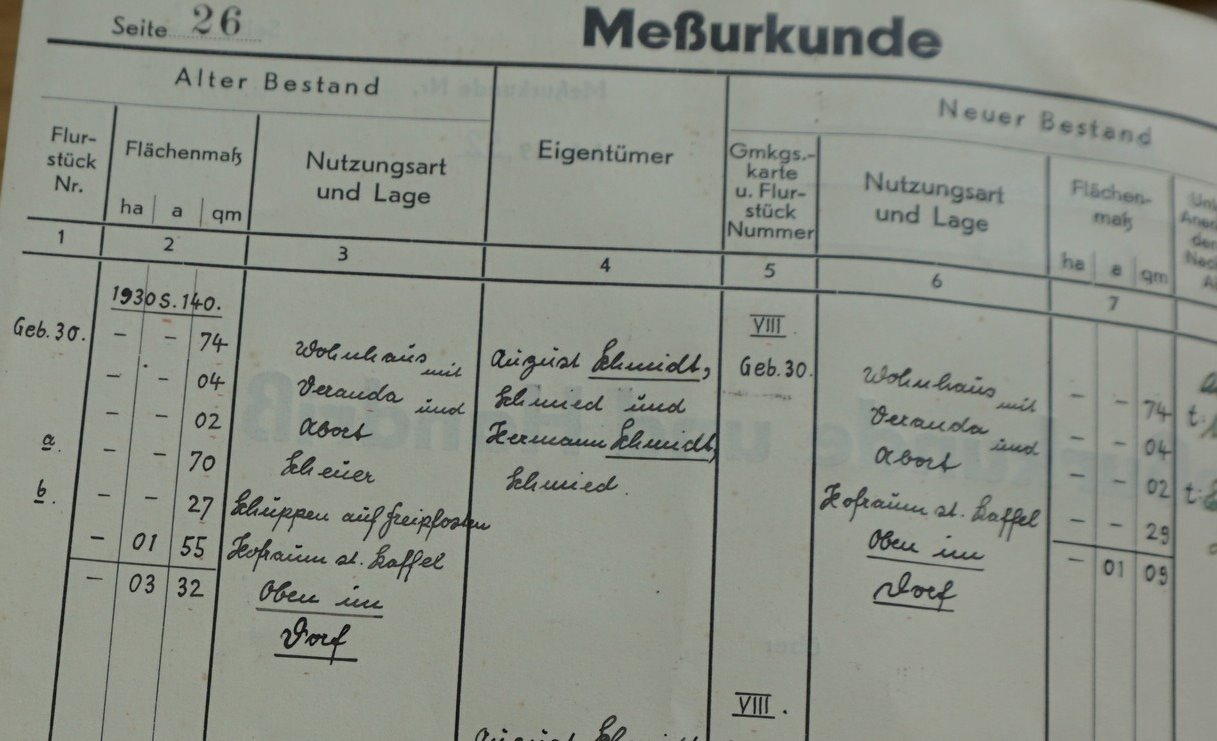 Seite 26
Meßurkunde
Alter Bestand
Neuer Bestand
Flur-
stück
Nr.
Flächenmaß
ha a qm
Nutzungsart
und Lage
Eigentümer
Gmkgs.-
karte
u. Flur-
stück
Nummer
Nutzungsart
und Lage
Flächen-
maß
ha a qm
1 2 3 4 5 6 7
1930 S. 140.
VIII.
Geb. 30. – – 74 Wohnhaus mit August Schmidt, Geb. 30. Wohnhaus mit – – 74
– – 04 Veranda und Schmied und Veranda und – – 04
– – 02 Abort Hermann Schmidt, Abort – – 02
a. – – 70 Scheuer Schmied. Hofraum st. Staffel – – 29
b. – – 27 Schuppen auf Freipfosten Oben im – 01 09
– 01 55 Hofraum st. Staffel Dorf
– 03 32 Oben im
Dorf
VIII.
August